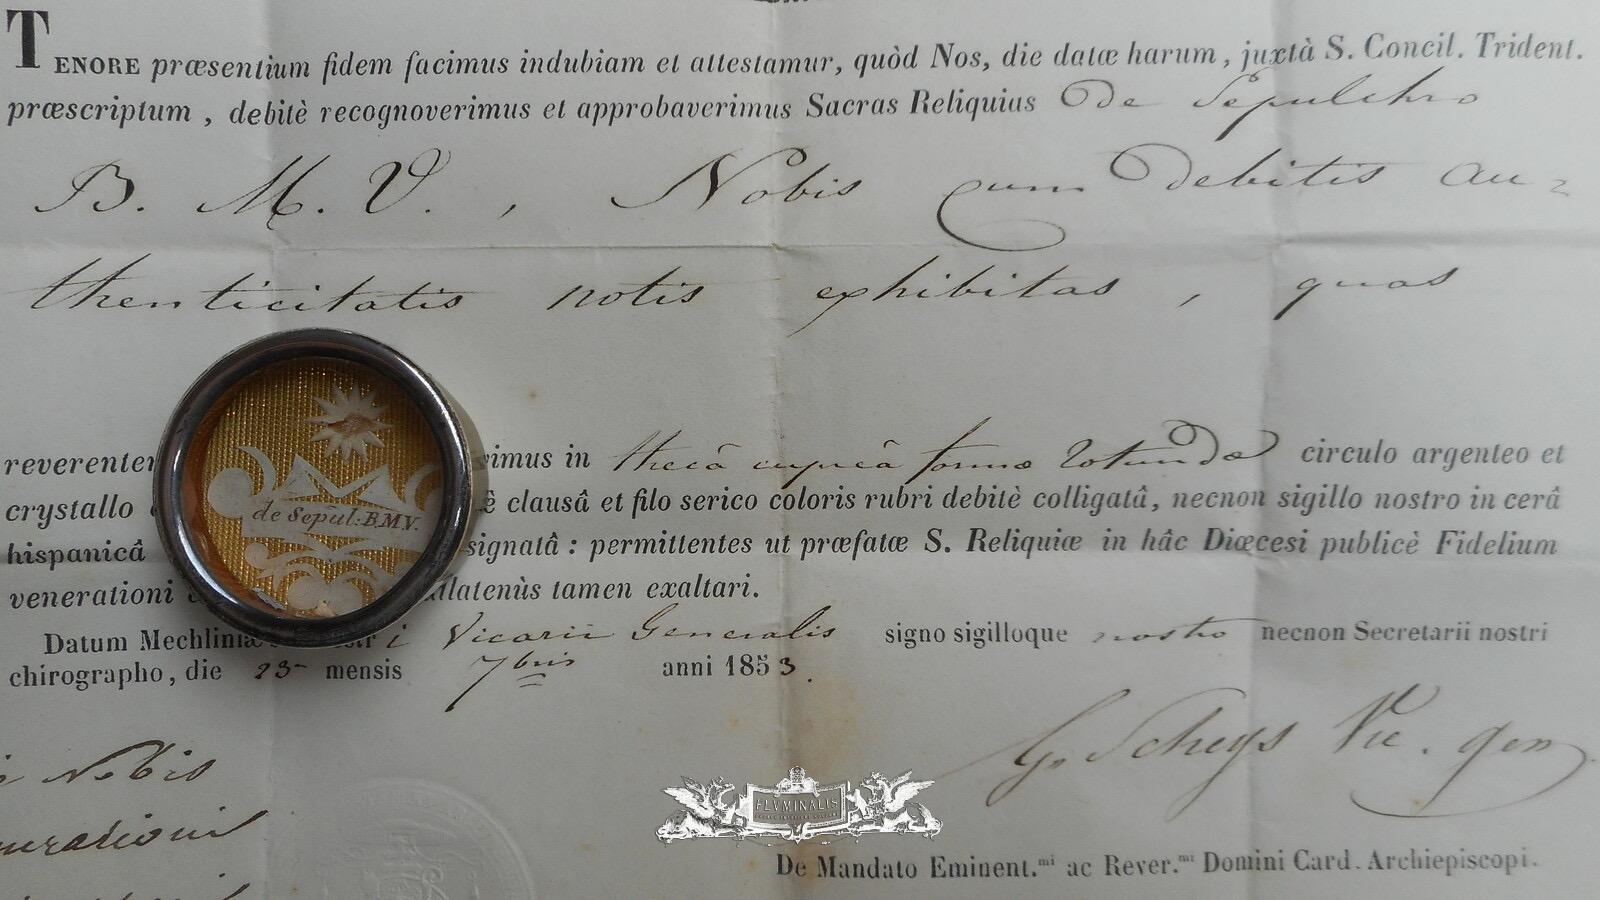 TENORE præsentium fidem facimus indubiam et attestamur, quòd Nos, die datæ harum, juxtà S. Concil. Trident.
præscriptum, debitè recognoverimus et approbaverimus Sacras Reliquias De Sepulchro
B. M. V., Nobis cum Debitis au=
thenticitatis notis exhibitas, quas
in thecâ cupreâ formæ rotundæ circulo argenteo et
crystallo clausâ et filo serico coloris rubri debitè colligatâ, necnon sigillo nostro in cerâ
hispanicâ signatâ: permittentes ut præfatæ S. Reliquiæ in hâc Diœcesi publicè Fidelium
venerationi tamen exaltari.
de Sepul: B.M.V.
Datum Mechliniæ Vicarii Generalis signo sigilloque nostro necnon Secretarii nostri
chirographo, die 23 mensis 7bris anni 1853.
G. Scheys Vic. gen
Nobis
FLVMINALIS
De Mandato Eminent.mi ac Rever.mi Domini Card. Archiepiscopi.